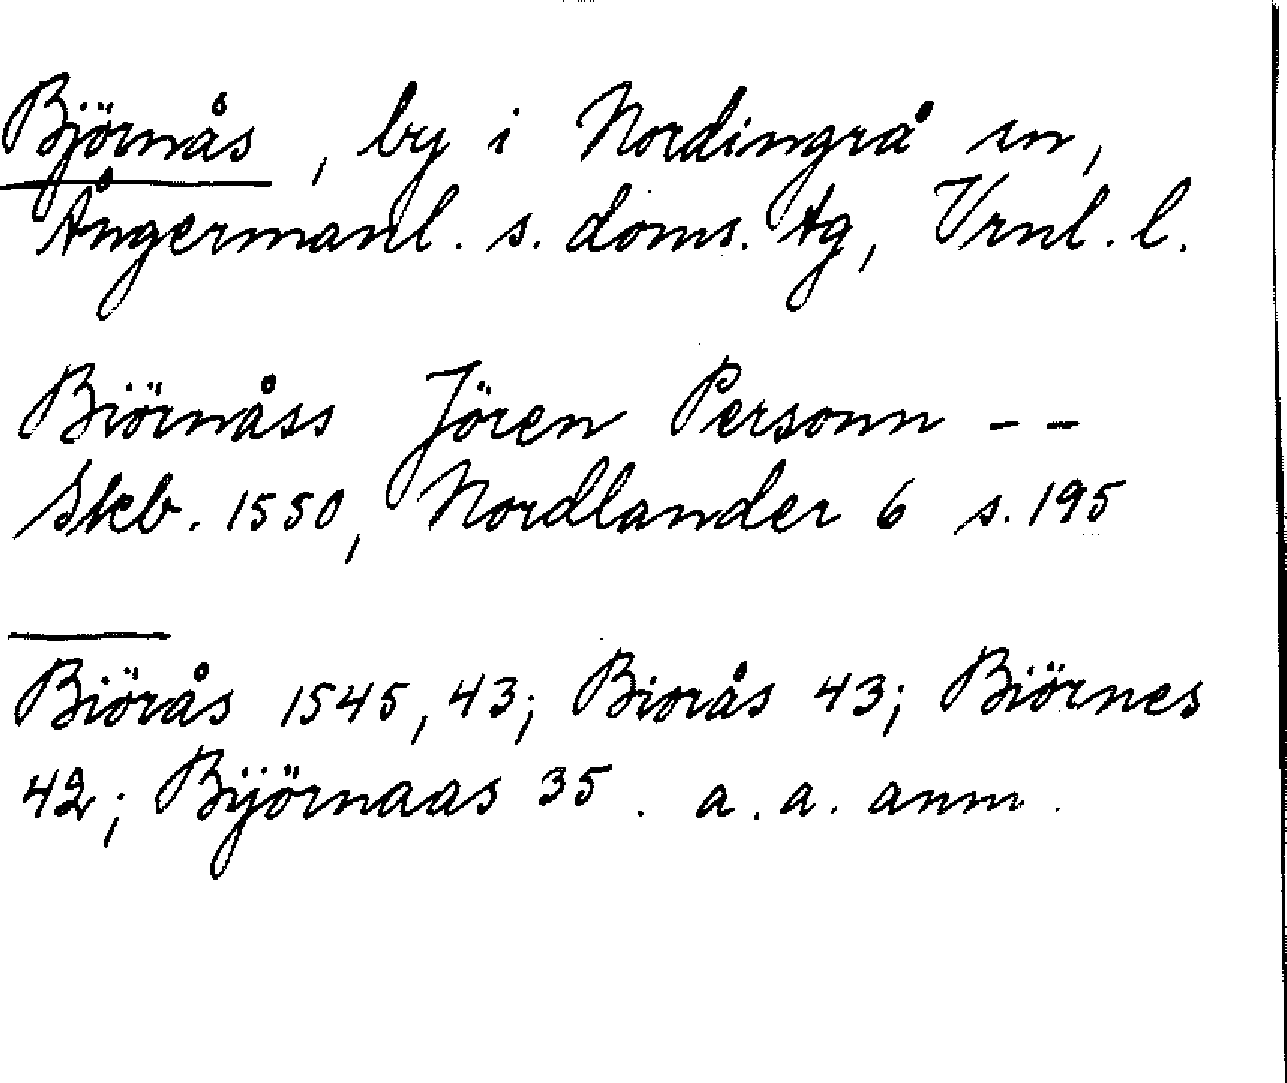 Björnås, by i Nordingrå sn,
Ångermanl. s. doms. tg, Vrnl. l.
Biörnåss Jören Personn - -
Skb. 1550, Nordlander 6 s. 195
Biörås 1545, 43; Biorås 43; Biörnes
42; Bijörnaas 35. a. a. anm.